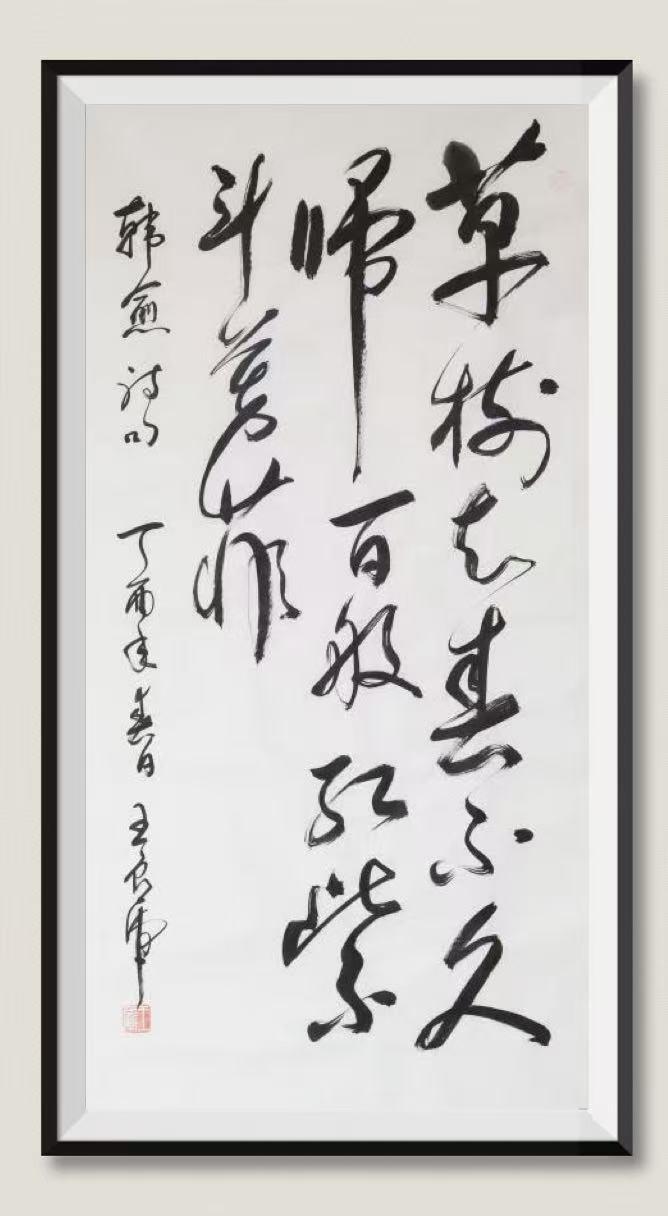 草树知春不久
归百般红紫
斗芳菲
韩愈诗句 丁酉年春日 王良